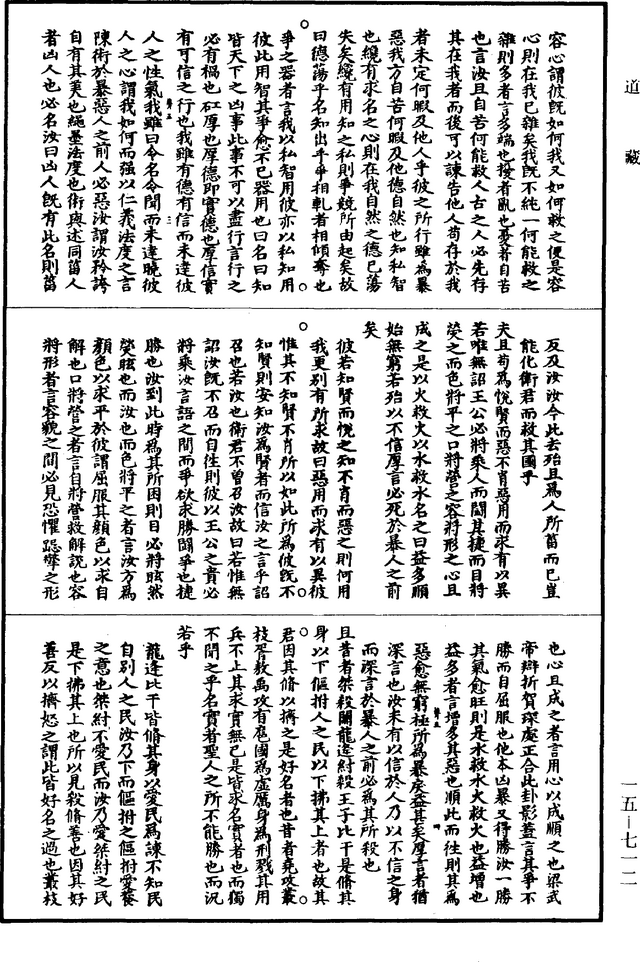 道藏
容心謂彼旣如何我又如何救之便是容
心則在我已雜矣我旣不純一何能救之
雜則多者言多端也擾者亂也憂者自苦
也言汝且自苦何能救人古之人必先存
其在我者而後可以諫告他人苟存於我
者未定何暇及他人乎彼之所行雖為暴
惡我方自苦何暇及他德自然也知私智
也纔有求名之心則在我自然之德已蕩
失矣纔有用知之私則爭競所由起矣故
曰德蕩乎名知出乎爭相軋者相傾奪也
爭之器者言我以私智用彼亦以私知用
彼此用智其爭愈不已器用也曰名曰知
皆天下之凶事此事不可以盡行言行之
必有禍也矼厚也厚德卽實德也厚信實
有可信之行也我雖有德有信而未達彼
人之性氣我雖曰令名令聞而未達曉彼
人之心謂我如何而强以仁義法度之言
陳術於暴惡人之前人必惡汝謂汝矜誇
自有其美也繩墨法度也術與述同菑人
者凶人也必名汝曰凶人旣有此名則菑
反及汝汝今此去殆且為人所菑而已豈
能化衛君而救其國乎
夫且苟為悅賢而惡不肖惡用而求有以異
若唯無詔王公必將乘人而鬭其捷而目將
熒之而色將平之口將營之容將形之心且
成之是以火救火以水救水名之曰益多順
始無窮若殆以不信厚言必死於暴人之前
矣
彼若知賢而悅之知不肖而惡之則何用
我更別有所求故曰惡用而求有以異彼
惟其不知賢不肖所以如此所為彼旣不
知賢則安知汝為賢者而信汝之言乎詔
召也若汝也衛君不曾召汝故曰若惟無
詔汝旣不召而自往則彼以王公之貴必
將乘汝言語之間而爭欲求勝鬭爭也捷
勝也汝到此時為其所困則目必將眩然
熒眩也而汝也而色將平之者言汝方為
顏色以求平於彼謂屈服其顏色以求自
解也口將營之者言自將營救解說也容
將形者言容貌之間必見恐懼跼蹐之形
也心且成之者言用心以成順之也梁武
帝辯折賀琛處正合此卦影蓋言其爭不
勝而自屈服也他本凶暴又得勝汝一勝
其氣愈旺則是水救水火救火也益增也
益多者言增多其惡也順此而往則其為
惡愈無窮極所為暴戾益甚矣厚言者猶
深言也汝未有以信於人乃以不信之身
而深言於暴人之前必為其所殺也
且昔者桀殺關龍逢紂殺王子比干是脩其
身以下傴拊人之民以下拂其上者也故其
君因其脩以擠之是好名者也昔者堯攻叢
枝胥敖禹攻有扈國為虛厲身為刑戮其用
兵不上其求實無已是皆求名實者也而獨
不聞之乎名實者聖人之所不能勝也而況
若乎
龍逢比干皆脩其身以愛民為諫不知民
自別人之民汝乃下而傴拊之傴拊愛養
之意也桀紂不愛民而汝乃愛桀紂之民
是下拂其上也所以見殺脩善也因其好
善反以擠怒之謂此皆好名之過也叢枝
一五—七一二